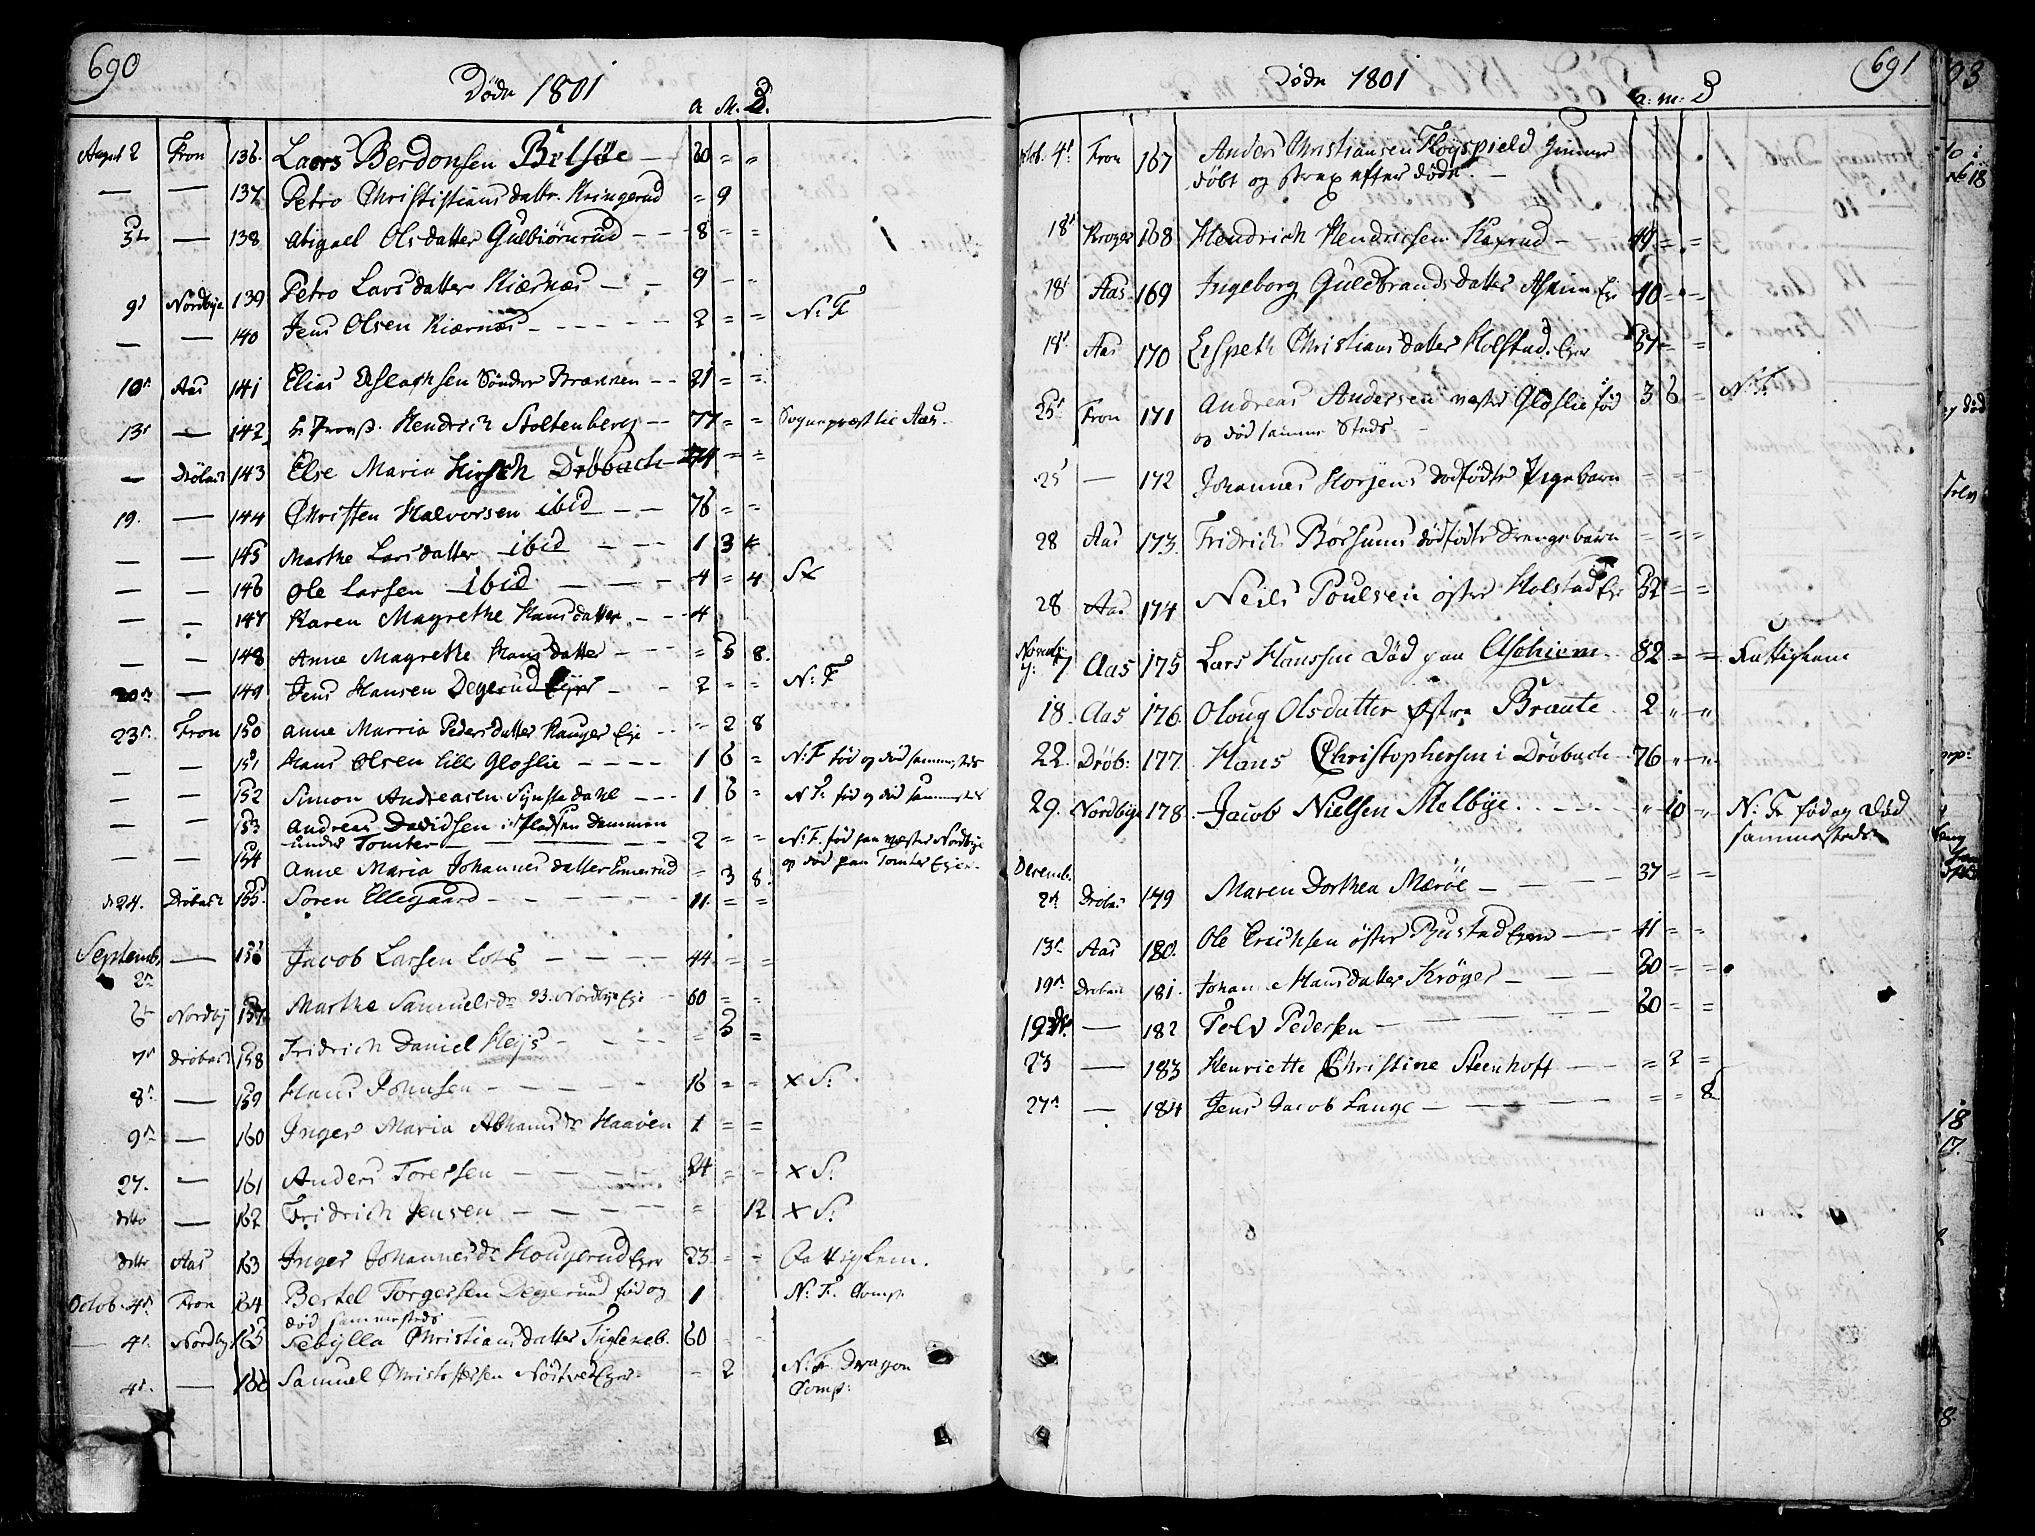 690
Døde 1801
a M. D.
August 2 Fron 136. Laers Berdonsen Bilsøe — 60 = =
— — 137 Petro Christistians dattr. Kringerud = 9
3de — 138 Abigael Olsdatter Gulbiørnrud — 8 = =
9de Nordbye 139 Petro Larsdatter Kiærnæs — 9 — =
— — 140 Jens Olsen Kiærnæs — 2 = = N: F
10de Aas 141 Elias Aslachsen Søndre Brønnen — 21 = =
13de — 142. Hendrich Stoltenberg — 77 = = Sognepræst til Aas.
— Drøbach 143 Else Maria Hirsch Drøbach — 74 = =
19. — 144 Christen Halvorsen ibid — 76 = =
— — 145 Marthe Larsdatter ibid — 1 3
— — 146 Ole Larsen ibid — 4 = 4 Sx
— — 147 Karen Magrethe Hansdatter — 4
— — 148 Anne Magrethe Hansdatter — = 5 8.
20de — 149 Jens Hansen Degerud Ejer — 2 = = N: F
23de Fron 150 Anne Marria Pedersdatter Hauger Eje — = 2 8
— — 151 Hans Olsen lille Gloslie — 1 6 = N: F fød og død sammesteds
— — 152 Simon Andreasen Synstedahl — 1 6 = N F: fød og død sammesteds
— — 153 Andreas Davidsen i Pladsen Dammen
under Tomter — 2 = = N: F. fød paa vestre Nordbye
og død paa Tomter Eje.
— — 154 Anne Maria Johannesdatter Ennerud = 3 8.
d: 24. Drøbach 155. Søren Ellegaard — 11. = =
Septemb.
2de — 156 Jacob Larsen Lots — 44 = =
6 Nordby 157 Marthe Samuelsdr Nordbye Eje — 60 = =
7de Drøbach 158 Fridrich Daniel Heijs — = 3 =
8de — 159 Hans Johnsen — 16 = = x S:
9de — 160 Inger Maria Abrahamsdr Haaven 1 = =
27. — 161 Anders Torersen — 24 = - x S:
ditto — 162 Fridrich Jensen — = 12 x S:
ditto Aas 163 Inger Johannesdr Hougerud Ejer 23 = - Fattiglem.
Octob. 4de Fron 164 Bertel Torgersen Degerud fød og 1 N: F. Comp:
død sammesteds
— 4de Nordbye 165 Sebylla Christiansdatter Tigleneb. 60 - -
4de. — 166 Samuel Christophersen Nøstvet Ejer = 2 N: F. Dragon
Comp:
691
Døde 1801
a: m: D
Octob. 4de Fron 167 Anders Christiansen Hogspield
døbt og strax efter døde. —
18de Kroger 168 Hendrich Hendrichsen Kaxrud — 49 = =
18de Aas 169 Ingeborg Guldbrandsdatter Askiim Eje 40 = =
18de Aas 170 Elspeth Christiansdatter Holstad. Ejer 57 = =
25de Fron 171 Andreas Andersen vestre Gloslie fød 3 6 = N: F.
og død samme Steds —
25 — 172 Johannes Horjens dødfødte Pigebarn = = =
28 Aas 173. Fridrich Børsums dødfødte Drengebarn = = =
28 Aas 174 Neils Poulsen østre Holstad Eje 32 = =
Novemb:
7 Aas 175 Lars Hanssen Død paa Aschiem 82 = = Fattiglem
18 Aas 176 Oloug Olsdatter Østre Braate 2 " "
22 Drøb: 177. Hans Christophersen i Drøbach 76 " "
29. Nordbye 178. Jacob Nielsen Melbye. " 10 " N: F fød og Død
sammesteds
Decemb.
2de Drøbac 179 Maren Dorthea Mærøe — 37 = =
13de Aas 180. Ole Erichsen østre Rustad Ejer — 41 = =
19de Drøbach 181. Johanne Hansdatter Krøger — 30 = =
19de — 182 Polv Pedersen — 60 = =
23 — 183 Henriette Christine Steenhoff — = 2 =
27de — 184 Jens Jacob Lange — = = 8